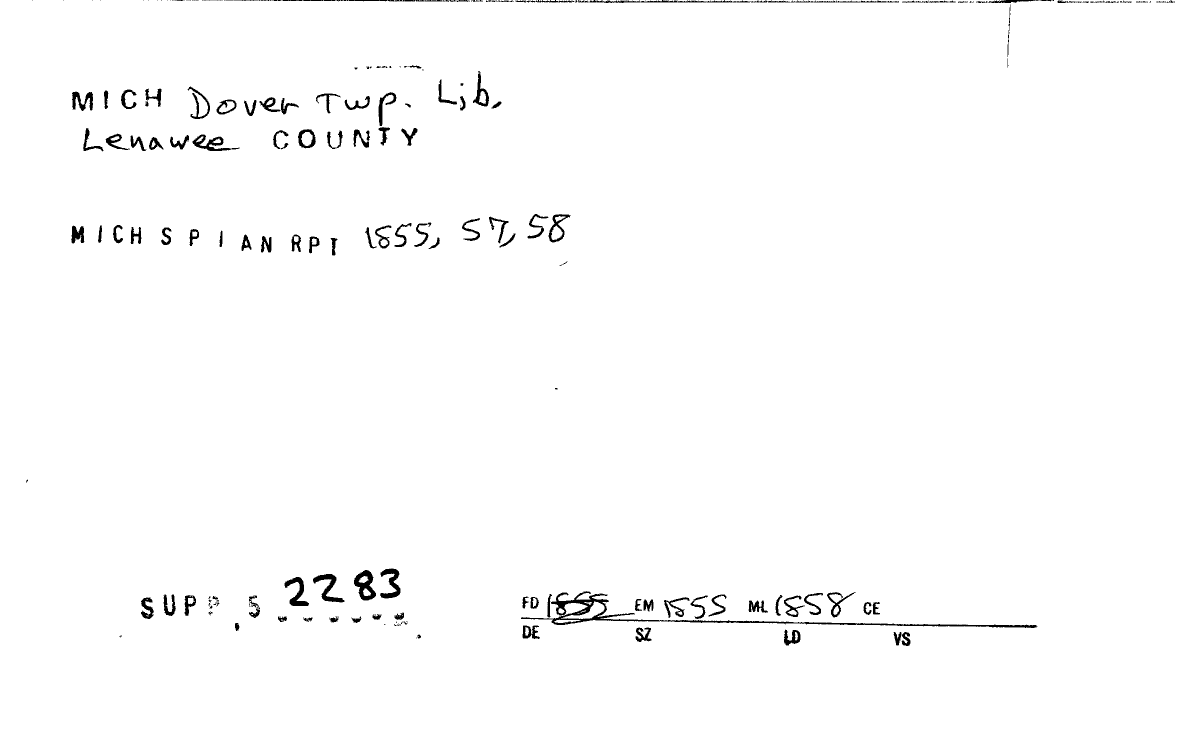 MICH Dover Twp. Lib.
Lenawee COUNTY
MICH S P I AN RPT 1855, 57, 58
SUPP. 5 2283
FD 1855 EM 1855 ML 1858 CE
DE SZ LD VS